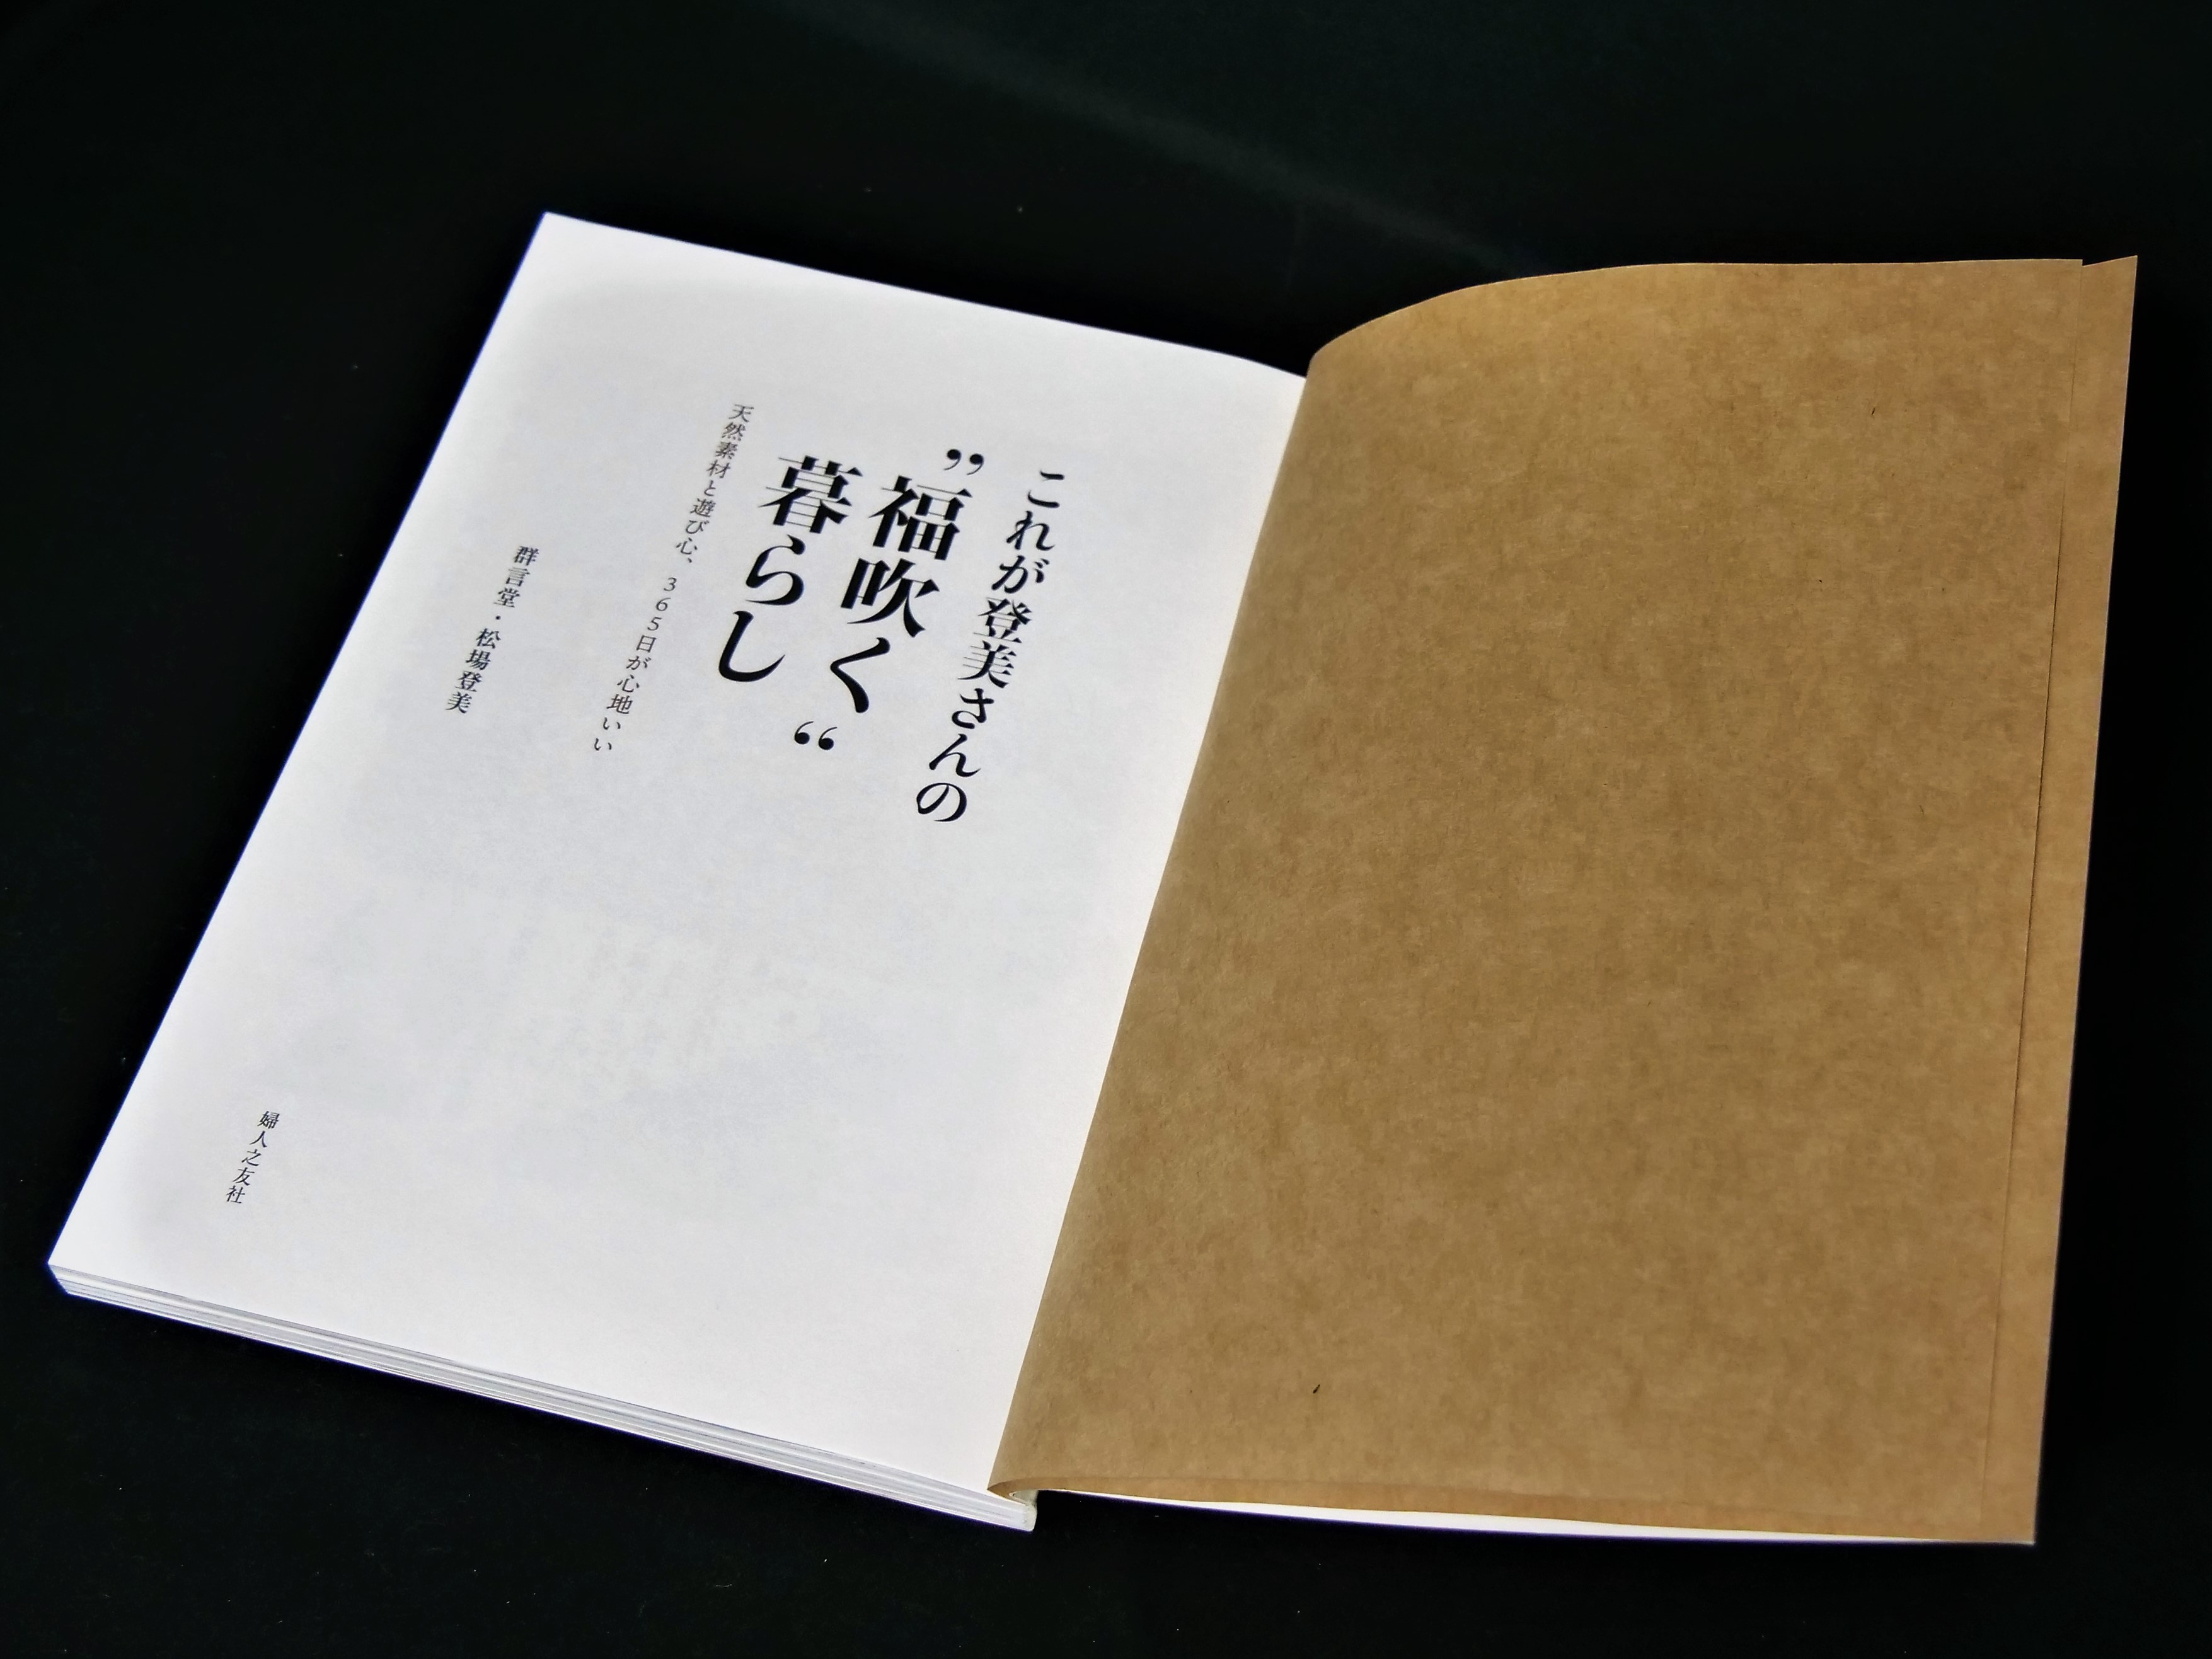 これが登美さんの
”福吹く“
暮らし
天然素材と遊び心、365日が心地いい
群言堂・松場登美
婦人之友社